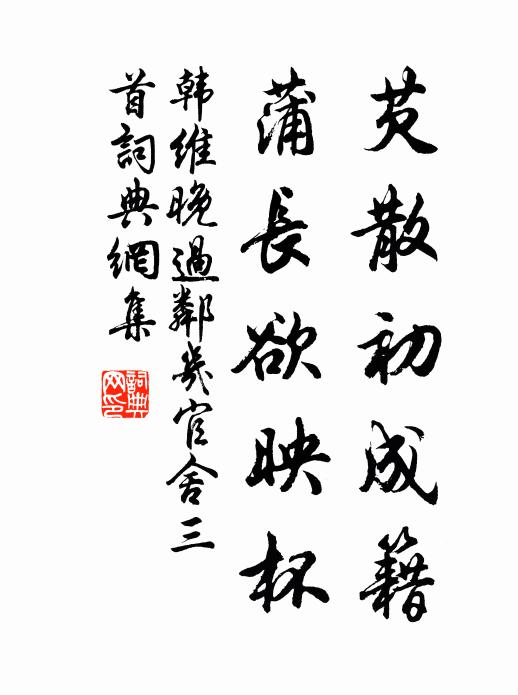 芡散初成籍
蒲長欲映杯
韩維晚過鄰幾官舍三
首詞典網集
詞典
网印